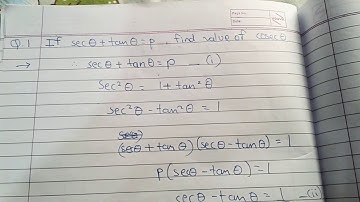 Q.1 If secθ + tanθ = p find value of cosecθ
→ ∴ secθ + tanθ = p — (i)
sec²θ = 1 + tan²θ
sec²θ - tan²θ = 1
(secθ + tanθ) (secθ - tanθ) = 1
p(secθ - tanθ) = 1
secθ - tanθ = 1 — (ii)